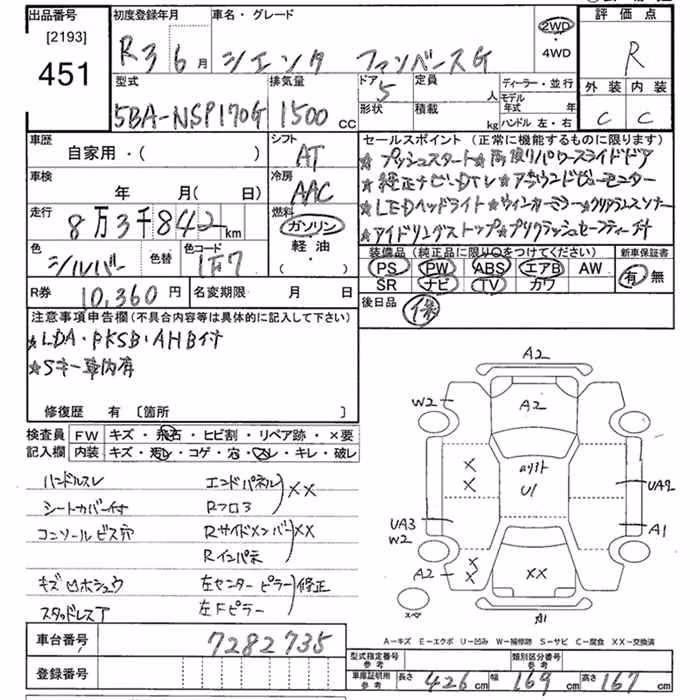 出品番号 初度登録年月 車名・グレード 評価点
[2193]
451 R3 6月 シエンタ ファンベースG 2WD ・ 4WD R
型式 排気量 ドア 定員 ディーラー・並行 外装 内装
5BA-NSP170G 1500cc 5 人 モデル年式 年 C C
形状 積載 kg ハンドル 左・右
車歴 シフト セールスポイント (正常に機能するものに限ります)
自家用・( ) AT ★プッシュスタート★両側パワースライドドア
車検 冷房 ★純正ナビ・DTV★アラウンドビューモニター
年 月(日) AAC ★LEDヘッドライト★ウィンカーミラー★クリアランスソナー
走行 燃料 ★アイドリングストップ★プリクラッシュセーフティー付
8万3千842km ガソリン
軽油
・( )
色 色替 色コード 装備品 (純正品に限り○をつけてください) 新車保証書
シルバー 1F7 PS PW ABS エアB AW 有・無
SR ナビ TV カワ
R券 10,360円 名変期限 月 日 後日品 保
注意事項申告欄 (不具合内容等は具体的に記入して下さい)
★LDA・PKSB・AHB付
★Sキー車内有
修復歴 有 [箇所 ]
検査員 FW キズ・飛石・ヒビ割・リペア跡・×要
記入欄 内装 キズ・汚レ・コゲ・穴・スレ・キレ・破レ
ハンドルスレ エンドパネル XX
シートカバー付 Rフロア
コンソールビス穴 Rサイドメンバー XX
Rインパネ
キズ凹ホシュウ 左センターピラー 修正
スタッドレスア 左Fピラー
A2
W2 A2
ルーフ
U1
UA2
UA3 A1
W2
A2 XX
スペア A1
A−キズ E−エクボ U−凹み W−補修跡 S−サビ C−腐食 XX−交換済
車台番号 7282735
型式指定番号 参考 類別区分番号 参考
登録番号 車庫証明用 参考 長さ 426cm 幅 169cm 高さ 167cm